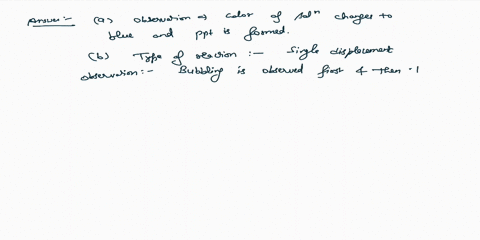 Answer :- (a) observation → color of solⁿ changes to
blue and ppt is formed.
(b) Type of reaction :- Single displacement
observation :- Bubbling is observed first & then